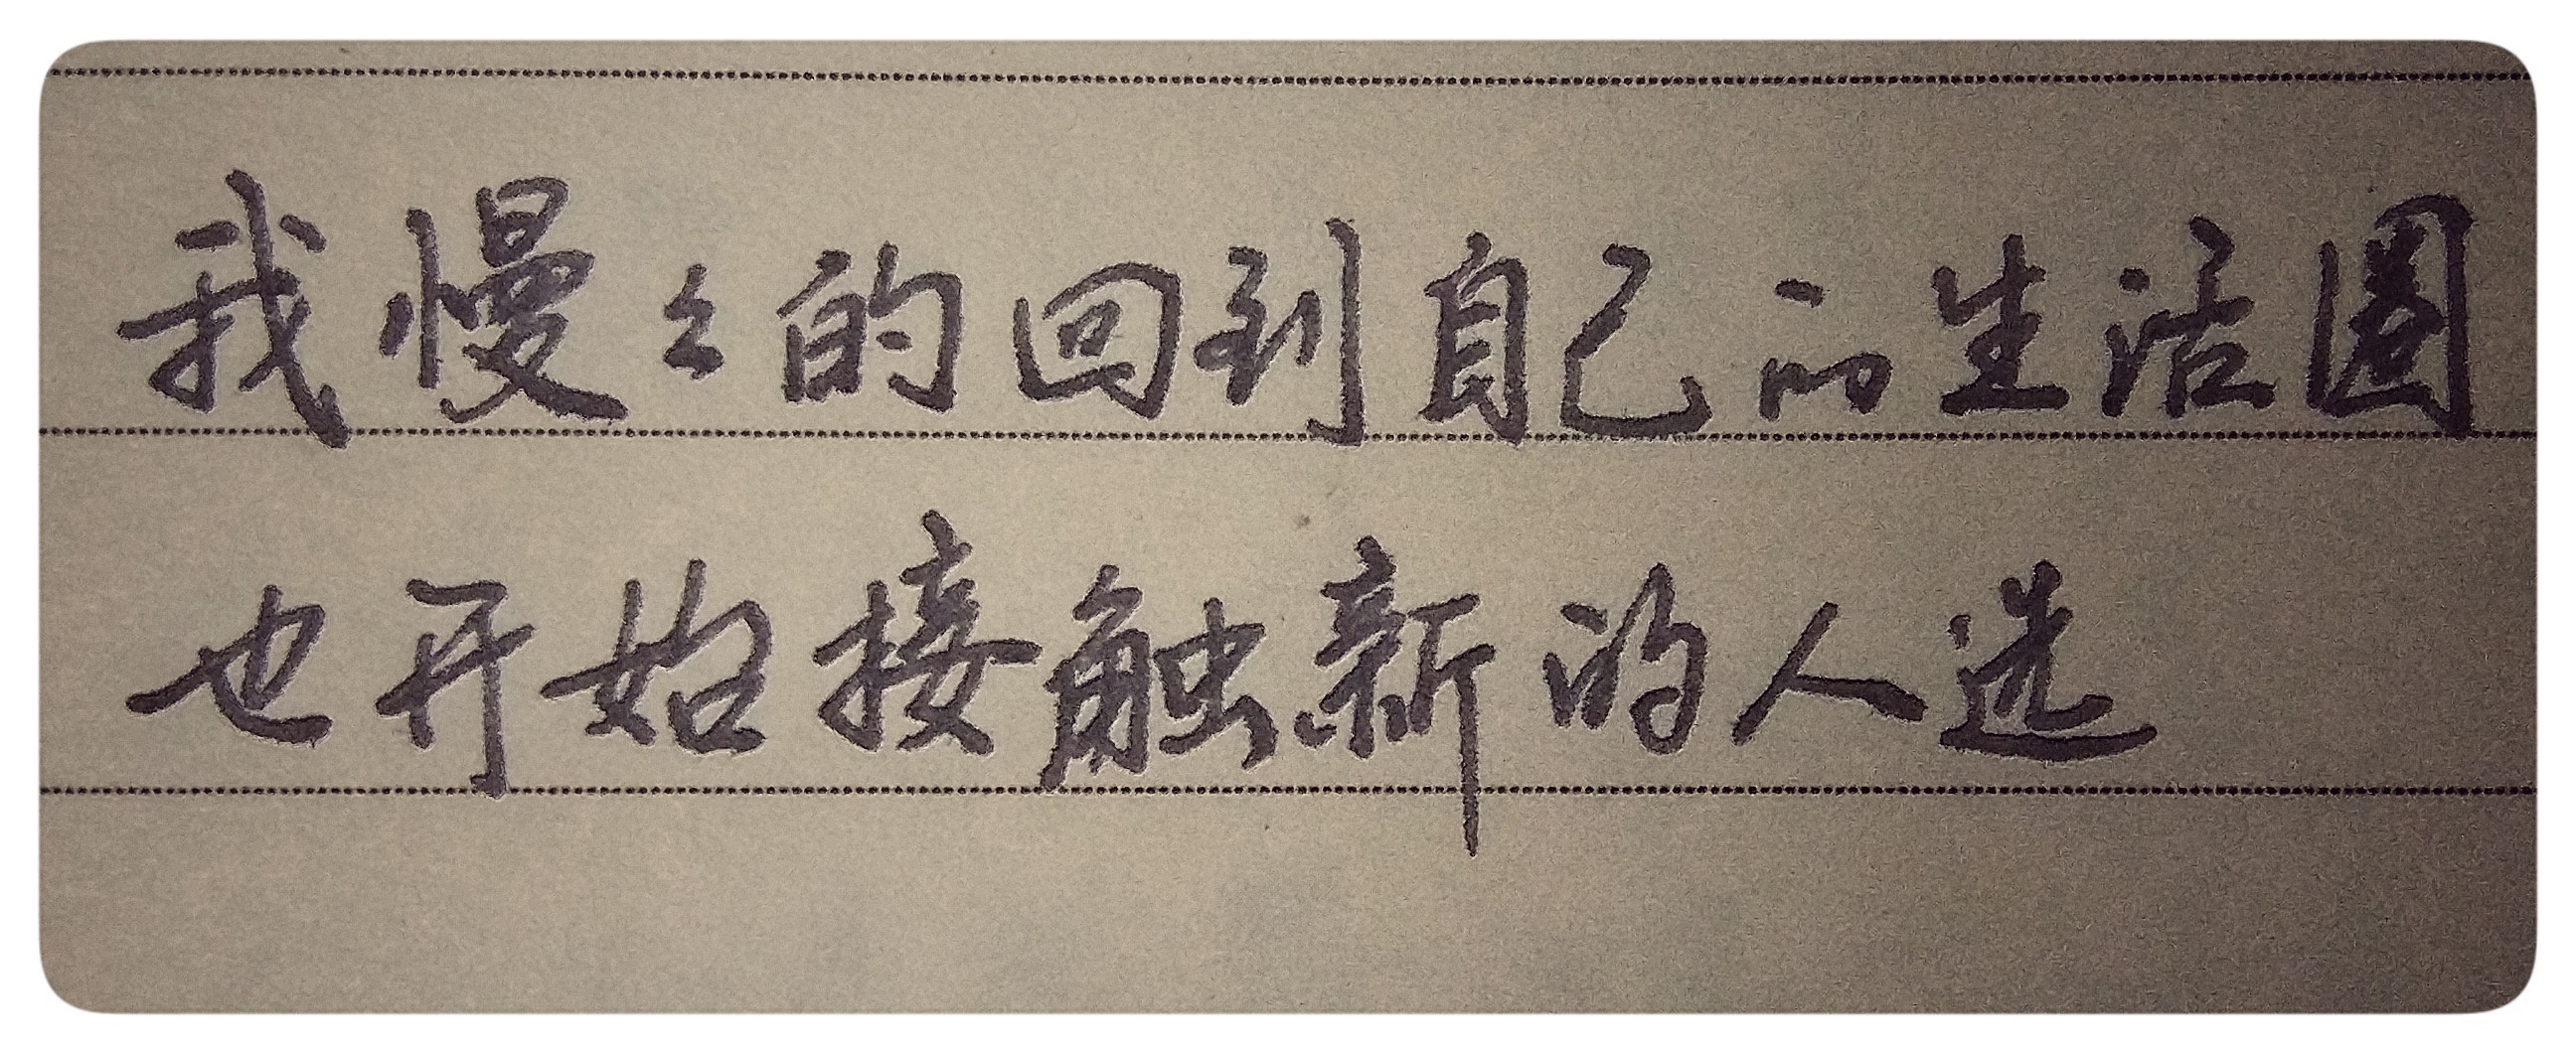 我慢々的回到自己的生活圈
也开始接触新的人选